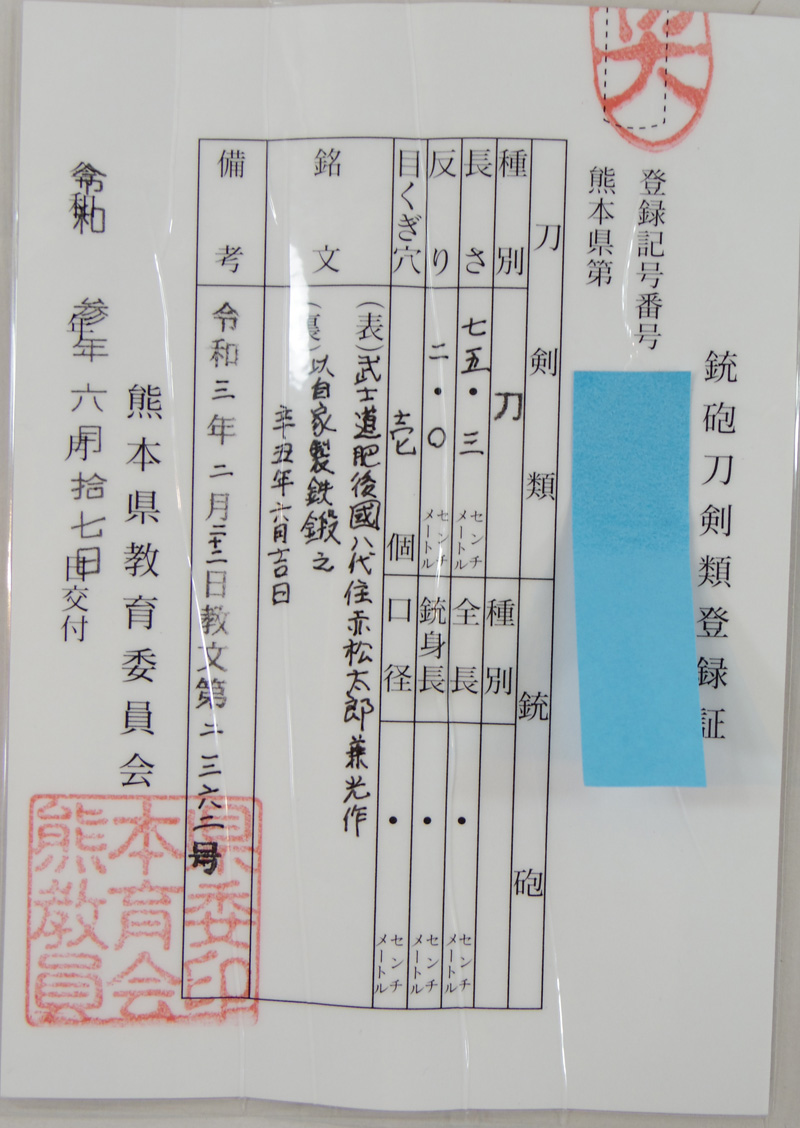 銃砲刀剣類登録証
登録記号番号
熊本県第
刀剣類
種別 刀
長さ 七五・三 センチメートル
反り 二・〇 センチメートル
目くぎ穴 壱個
銘文
(表)武士道肥後國八代住赤松太郎兼光作
(裏)以自家製鉄鍛之
辛丑年六月吉日
備考 令和三年二月二十二日教文第二三六二号
銃砲
種別
全長 ・ センチメートル
銃身長 ・ センチメートル
口径 ・ センチメートル
令和参年六月拾七日交付
熊本県教育委員会
熊本県教育委員会印